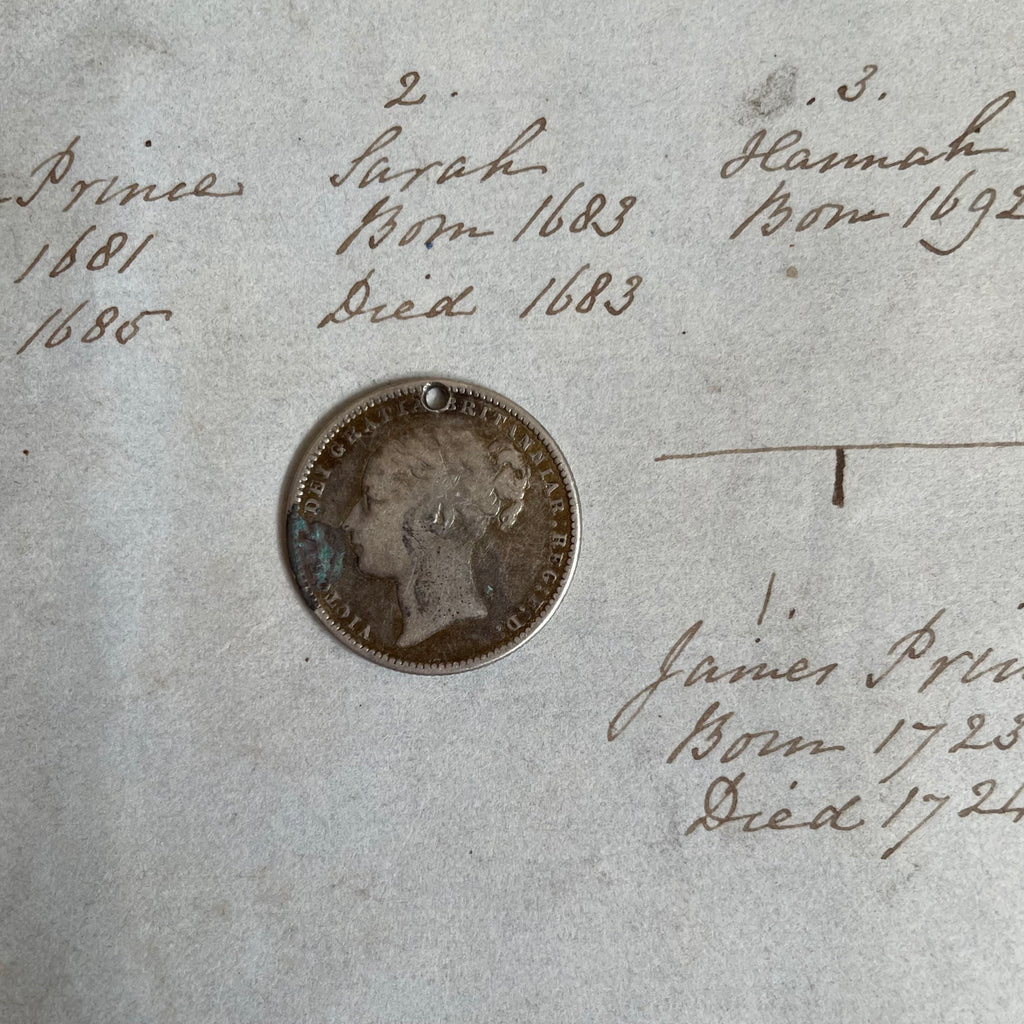 2.
. 3.
Prince
Sarah
Hannah
1681
Born 1683
Born 1692
1685
Died 1683
VICTORIA DEI GRATIA BRITANNIAR: REG: F: D:
1.
James Prin
Born 1723
Died 1724